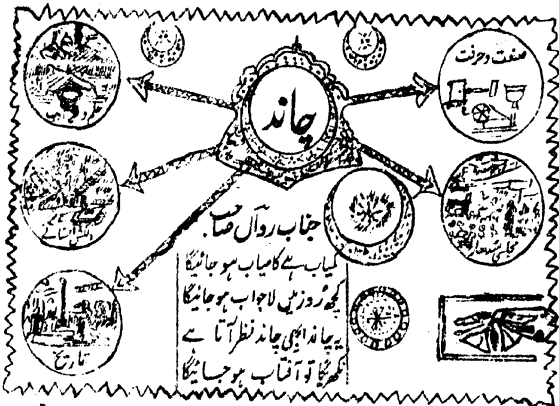 چاند
صنعت و حرفت
تاریخ
جناب رواں صاحب
کمیاب ہے کامیاب ہو جائیگا
کچھ روز میں لاجواب ہو جائیگا
یہ چاند ابھی چاند نظر آتا ہے
نکھریگا تو آفتاب ہو جائیگا